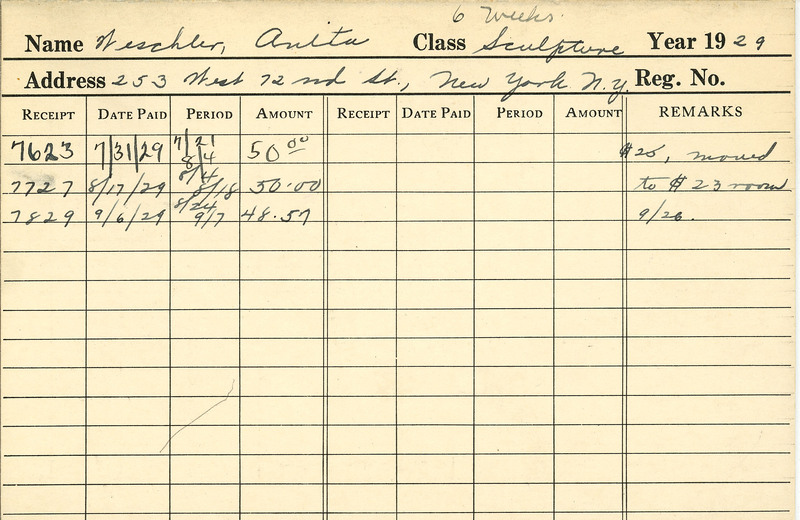 6 Weeks.
Name Weschler, Anita Class Sculpture Year 1929
Address 253 West 72nd St., New York N.Y. Reg. No.
RECEIPT DATE PAID PERIOD AMOUNT RECEIPT DATE PAID PERIOD AMOUNT REMARKS
7623 7/31/29 7/21 8/4 50.00 $25, moved
7727 8/17/29 8/4 8/18 50.00 to $23 room
7829 9/6/29 8/24 9/7 48.57 9/26.